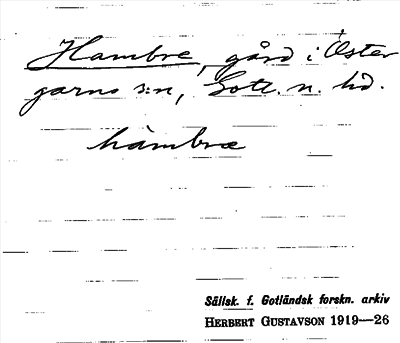 Hambre, gård i Öster
garns s:n, Gotl. n. hd.
hàmbræ
Sällsk. f. Gotländsk forskn. arkiv
HERBERT GUSTAVSON 1919—26